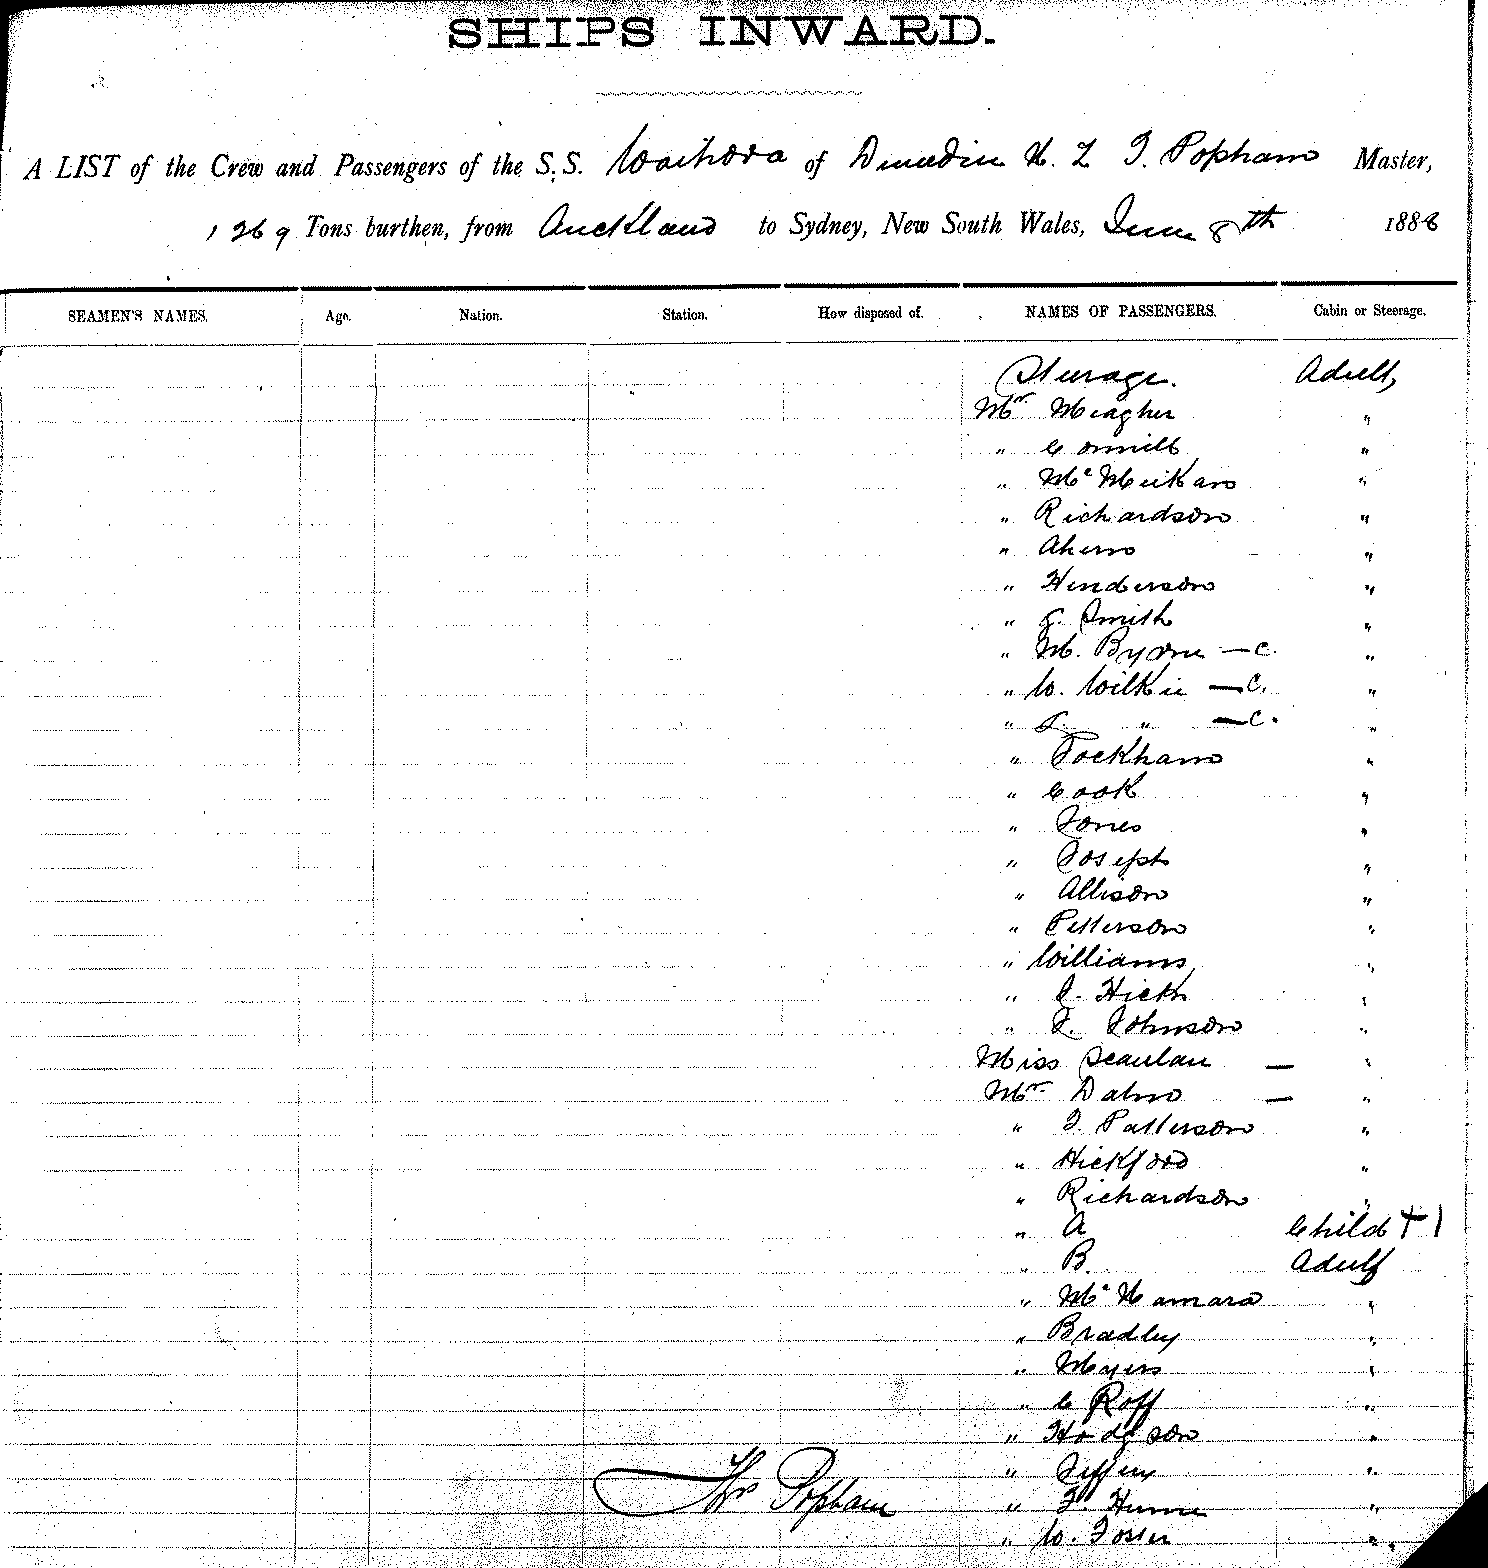 SHIPS INWARD.
A LIST of the Crew and Passengers of the S.S. Waihora of Dunedin N. Z T. Popham Master,
1269 Tons burthen, from Auckland to Sydney, New South Wales, June 8th 1888
SEAMEN'S NAMES. Age. Nation. Station. How disposed of. NAMES OF PASSENGERS. Cabin or Steerage.
Steerage. Adult,
Mr Meagher "
" Connell "
" Mc Meikan "
" Richardson "
" Ahern "
" Henderson "
" G. Smith "
" M. Byrne — C. "
" W. Wilkie — C. "
" " — C. "
" Tockham "
" Cook "
" Jones "
" Joseph "
" Allison "
" Petterson "
" Williams "
" J. Hick "
" J. Johnson "
Miss Scanlan — "
Mr — "
" J. Patterson "
" Hickford "
" Richardson "
" A Child + 1
" B. Adult
" Mc Namara "
" Bradley "
" Meyers "
" C Roff "
" Hodgson "
" Jeffery "
Thos Popham " F Hume "
" W. Foster "